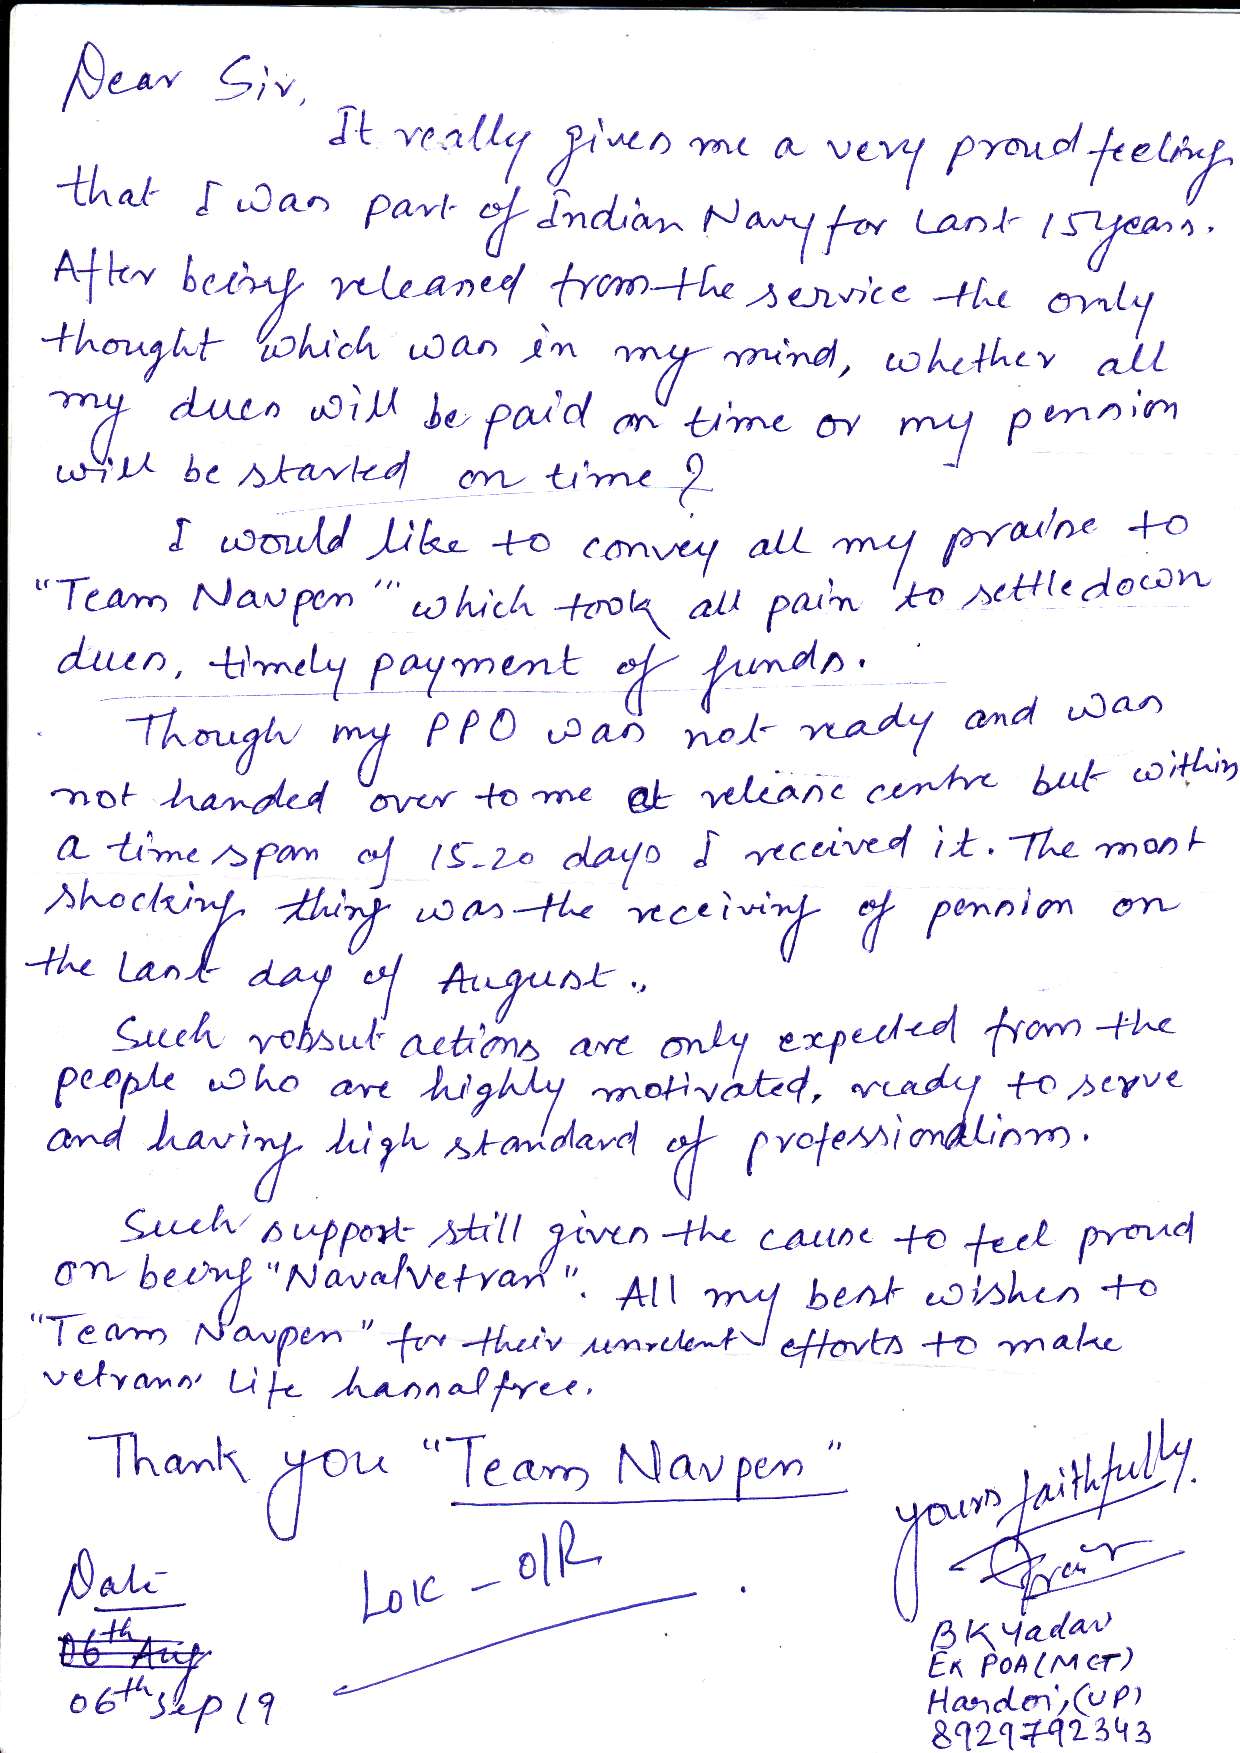 Dear Sir,
It really gives me a very proud feeling
that I was part of Indian Navy for last 15 years.
After being released from the service the only
thought which was in my mind, whether all
my dues will be paid on time or my pension
will be started on time?
I would like to convey all my praise to
"Team Navpen" which took all pain to settle down
dues, timely payment of funds.
Though my PPO was not ready and was
not handed over to me at release centre but within
a time span of 15-20 days I received it. The most
shocking thing was the receiving of pension on
the last day of August..
Such robsut actions are only expected from the
people who are highly motivated, ready to serve
and having high standard of professionalism.
Such support still gives the cause to feel proud
on being "Naval Vetran". All my best wishes to
"Team Navpen" for their unrelent efforts to make
vetrans' life hassalfree.
Thank you "Team Navpen"
yours faithfully.
Date
06th Aug
06th Sep 19
LOK - O/R
BK Yadav
Ex POA (MCT)
Hardoi, (UP)
8929792343